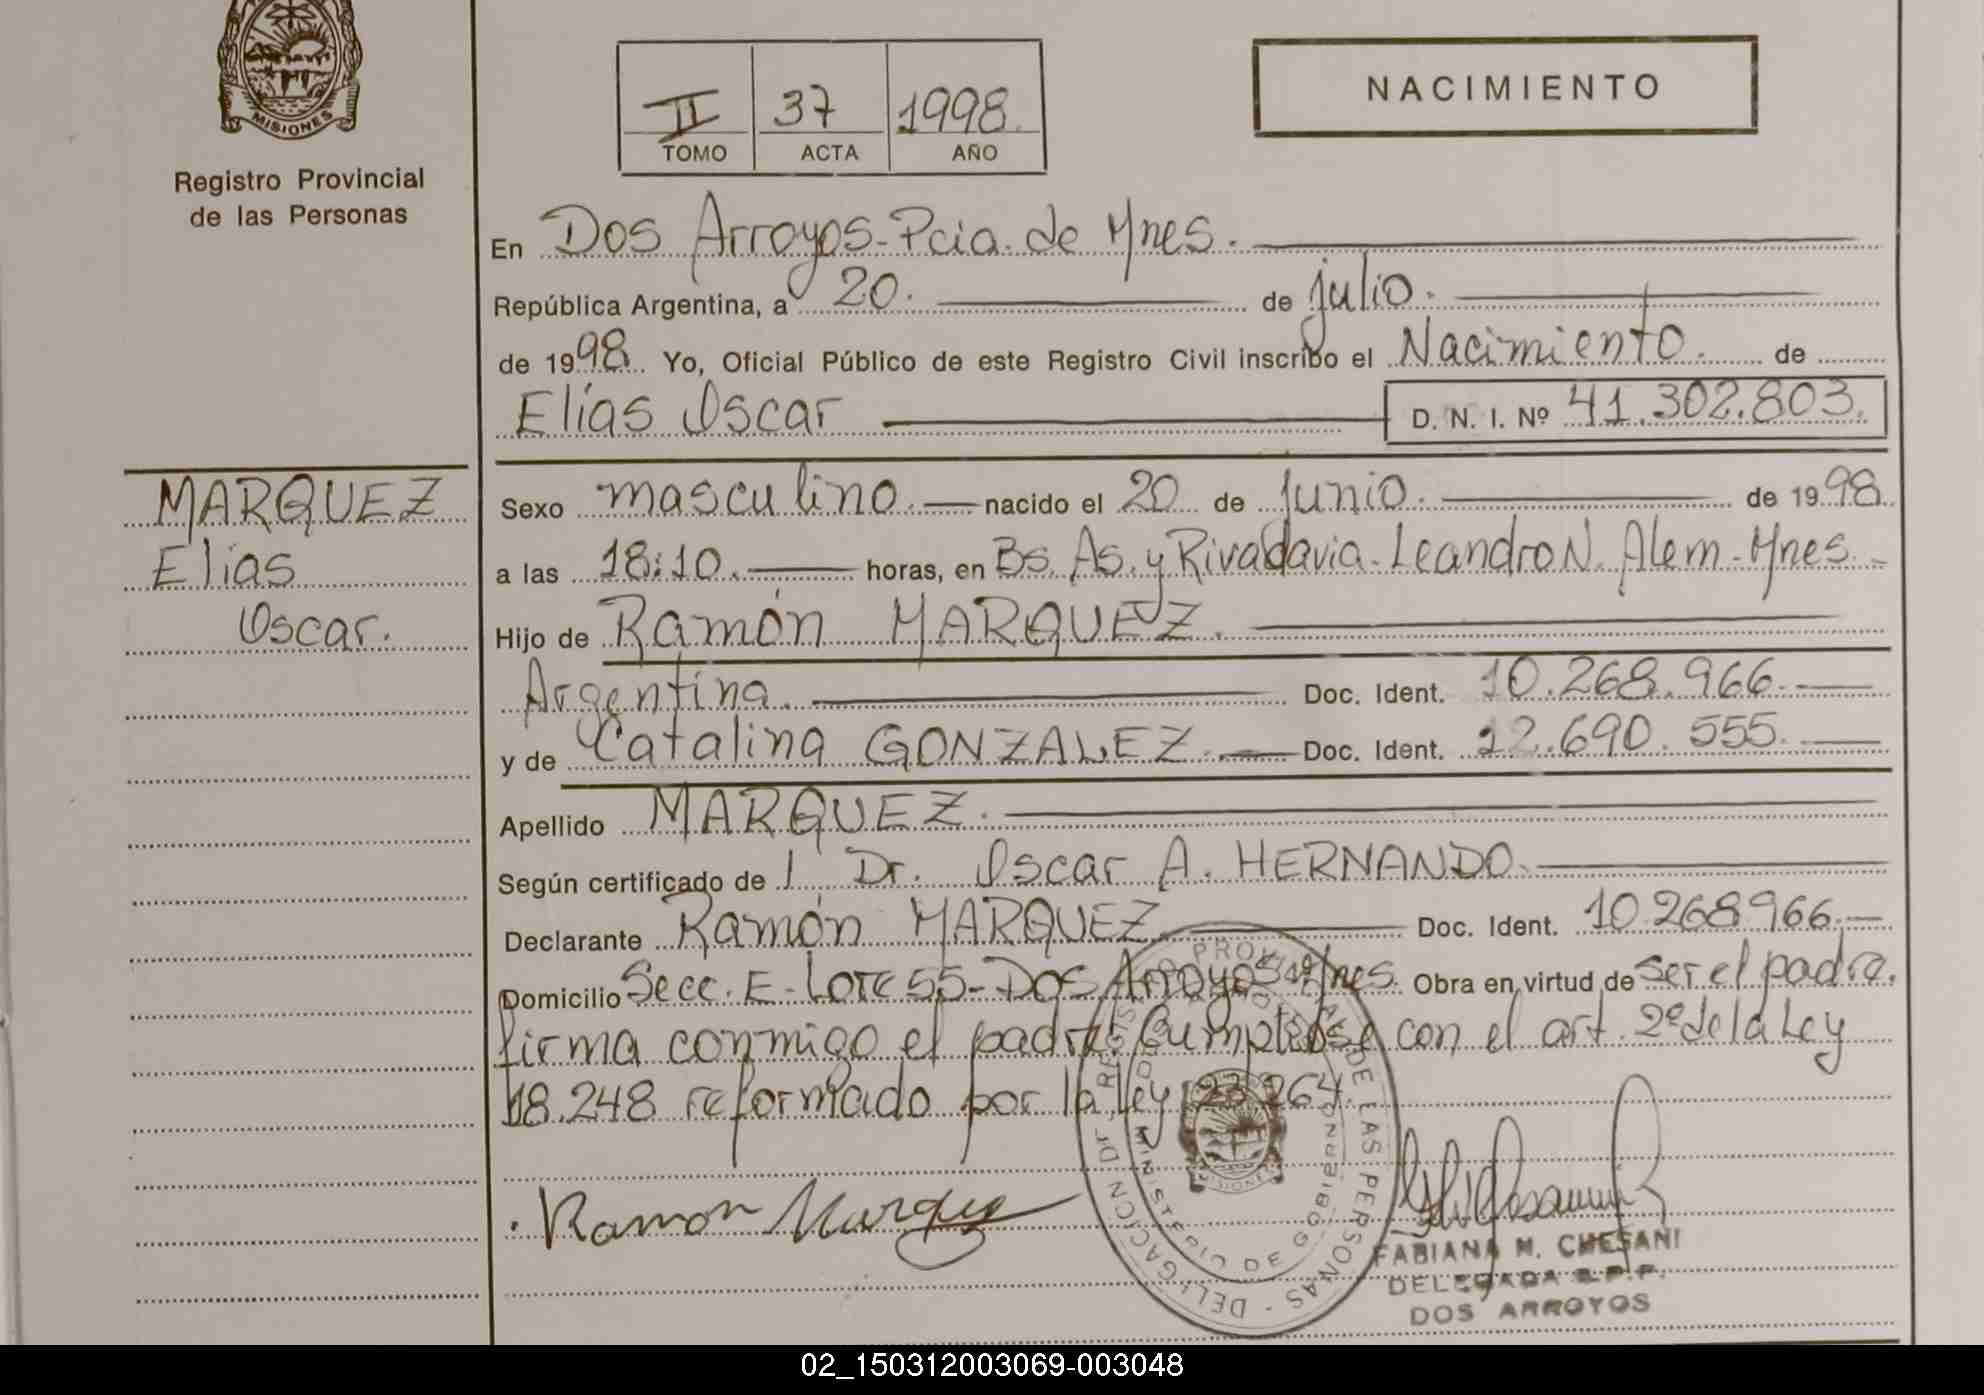 MISIONES
Registro Provincial
de las Personas
II 37 1998.
TOMO ACTA AÑO
NACIMIENTO
En Dos Arroyos-Pcia. de Mnes.
República Argentina, a 20. de julio.
de 1998. Yo, Oficial Público de este Registro Civil inscribo el Nacimiento. de
Elías Oscar D. N. I. Nº 41.302.803.
MARQUEZ
Elías
Oscar.
Sexo masculino. nacido el 20 de junio. de 1998.
a las 18:10. horas, en Bs. As. y Rivadavia-Leandro N. Alem-Mnes.
Hijo de Ramón MARQUEZ.
Argentina. Doc. Ident. 10.268.966.
y de Catalina GONZALEZ. Doc. Ident. 12.690.555.
Apellido MARQUEZ.
Según certificado de l Dr. Oscar A. HERNANDO.
Declarante Ramón MARQUEZ Doc. Ident. 10.268966.
Domicilio Secc. E-Lote 55-Dos Arroyos Mnes. Obra en virtud de ser el padre.
firma conmigo el padre. Cumplese con el art. 2º de la Ley
18.248 reformado por la ley 23.264.
Ramon Marquez
DELEGACION DE REGISTRO PROVINCIAL DE LAS PERSONAS
MINISTERIO DE GOBIERNO
MISIONES
FABIANA M. CHESANI
DELEGADA R.P.P.
DOS ARROYOS
02_150312003069-003048